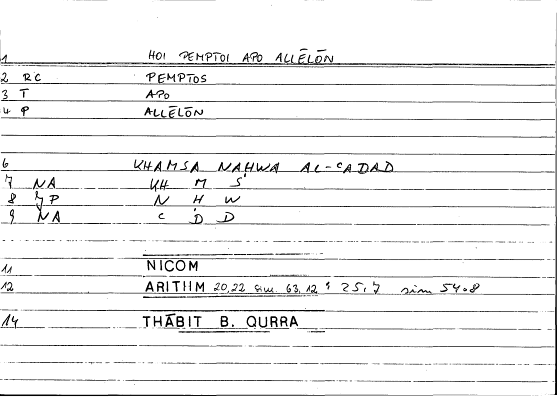 1 HOI PEMPTOI APO ALLĒLŌN
2 RC PEMPTOS
3 T APO
4 P ALLĒLŌN
6 KHAMSA NAHWA AL-CADAD
7 NA KH M S
8 P N H W
9 NA C D D
11 NICOM
12 ARITHM 20,22 sim. 63,12 25,7 sim 54.8
14 THĀBIT B. QURRA